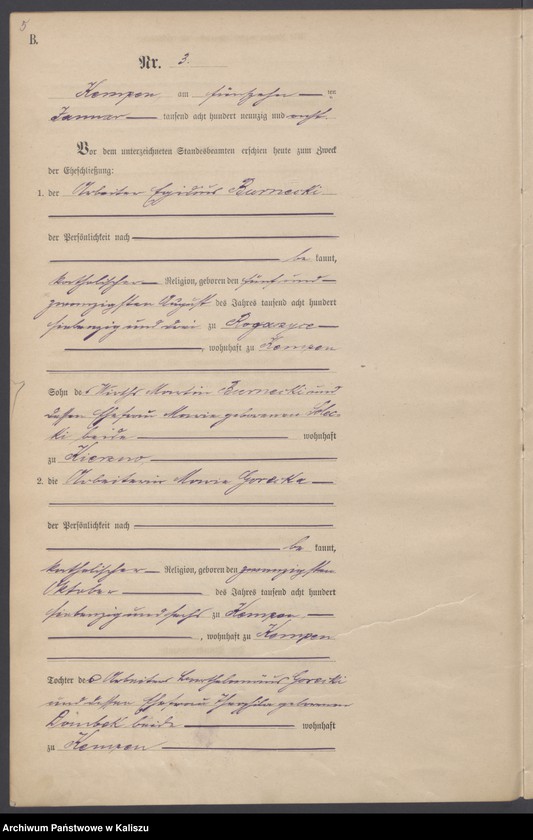 5
B.
Nr. 3.
Kempen am fünfzehn ten
Januar tausend acht hundert neunzig und acht.
Vor dem unterzeichneten Standesbeamten erschien heute zum Zweck
der Eheschließung:
1. der Arbeiter Egidius Burnecki
der Persönlichkeit nach
be kannt,
katholischer Religion, geboren den fünf und
zwanzigsten August des Jahres tausend acht hundert
siebenzig und drei zu
, wohnhaft zu Kempen
Sohn des Wirths Martin Burnecki und
dessen Ehefrau Marie geborenen
ki beide wohnhaft
zu Kierzno
2. die Arbeiterin Marie Gorecka
der Persönlichkeit nach
be kannt,
katholischer Religion, geboren den zwanzigsten
Oktober des Jahres tausend acht hundert
siebenzig und sechs zu Kempen
, wohnhaft zu Kempen
Tochter des Arbeiters Barthelomäus Gorecki
und dessen Ehefrau geborenen
Dombek beide wohnhaft
zu Kempen
Archiwum Państwowe w Kaliszu